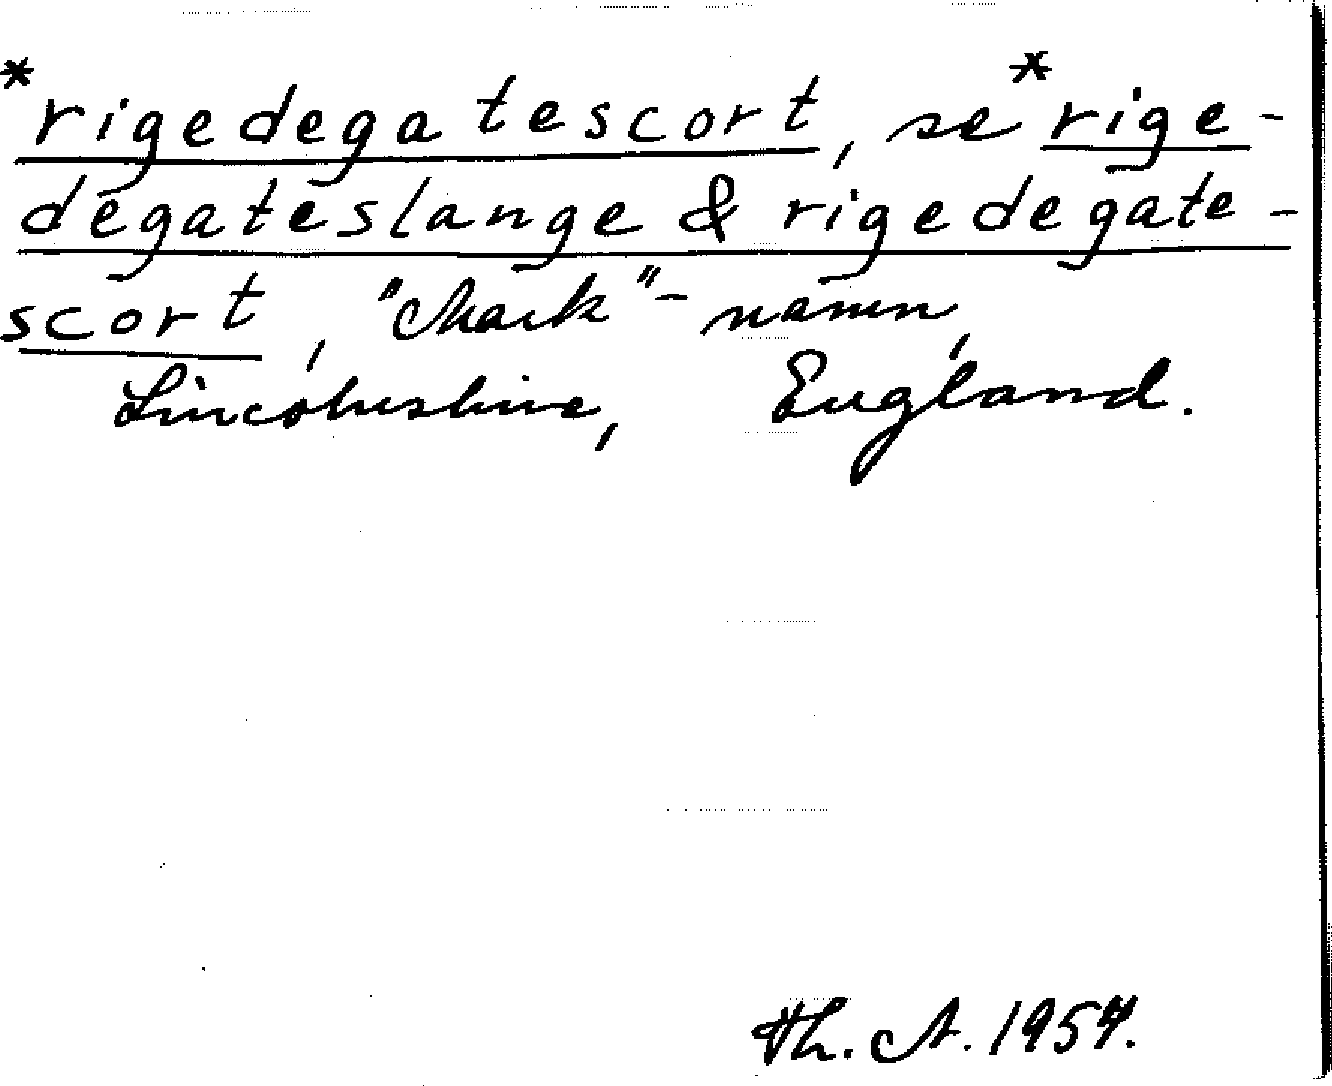 *rigedegatescort, se *rige-
degateslange & rigedegate-
scort, "Mark"-namn,
Lincolnshire, England.
Th. A. 1954.